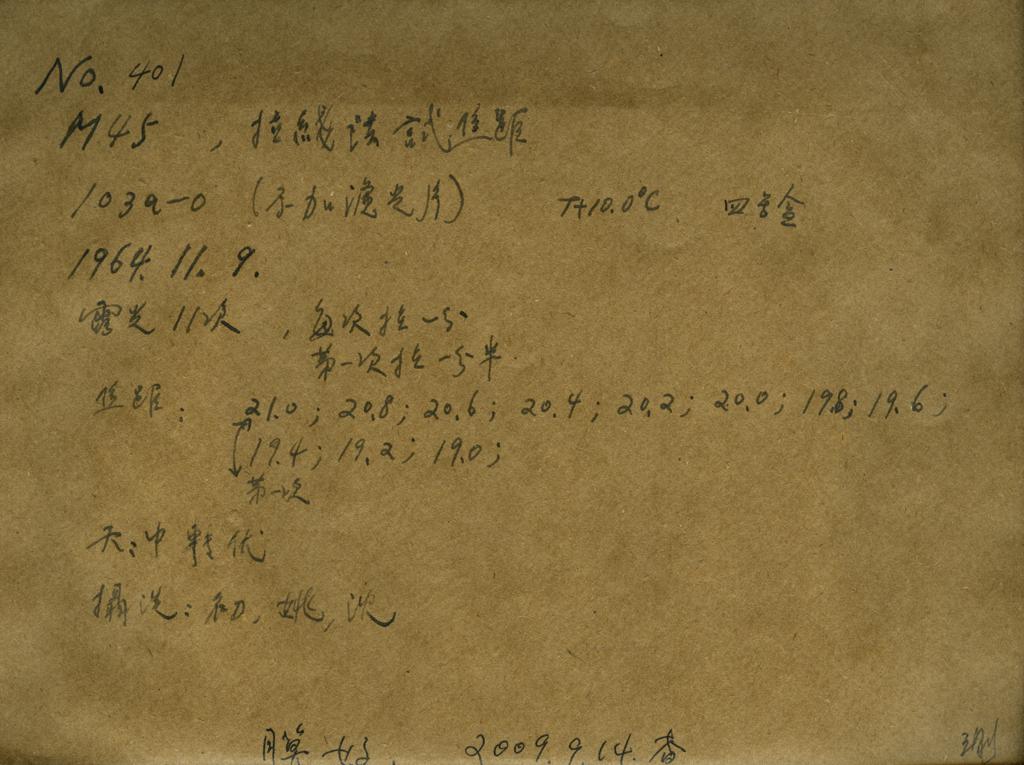 No. 401
M45 , 拉線法試焦距
103a-0 (不加濾光片) T+10.0°C 四号盒
1964. 11. 9.
露光 11次 , 每次拉一分
第一次拉一分半.
焦距: 21.0; 20.8; 20.6; 20.4; 20.2; 20.0; 19.8; 19.6;
19.4; 19.2; 19.0;
第一次
天: 中軽优
攝洗: 初, 姚, 沈
膜 好. 2009.9.14. 查